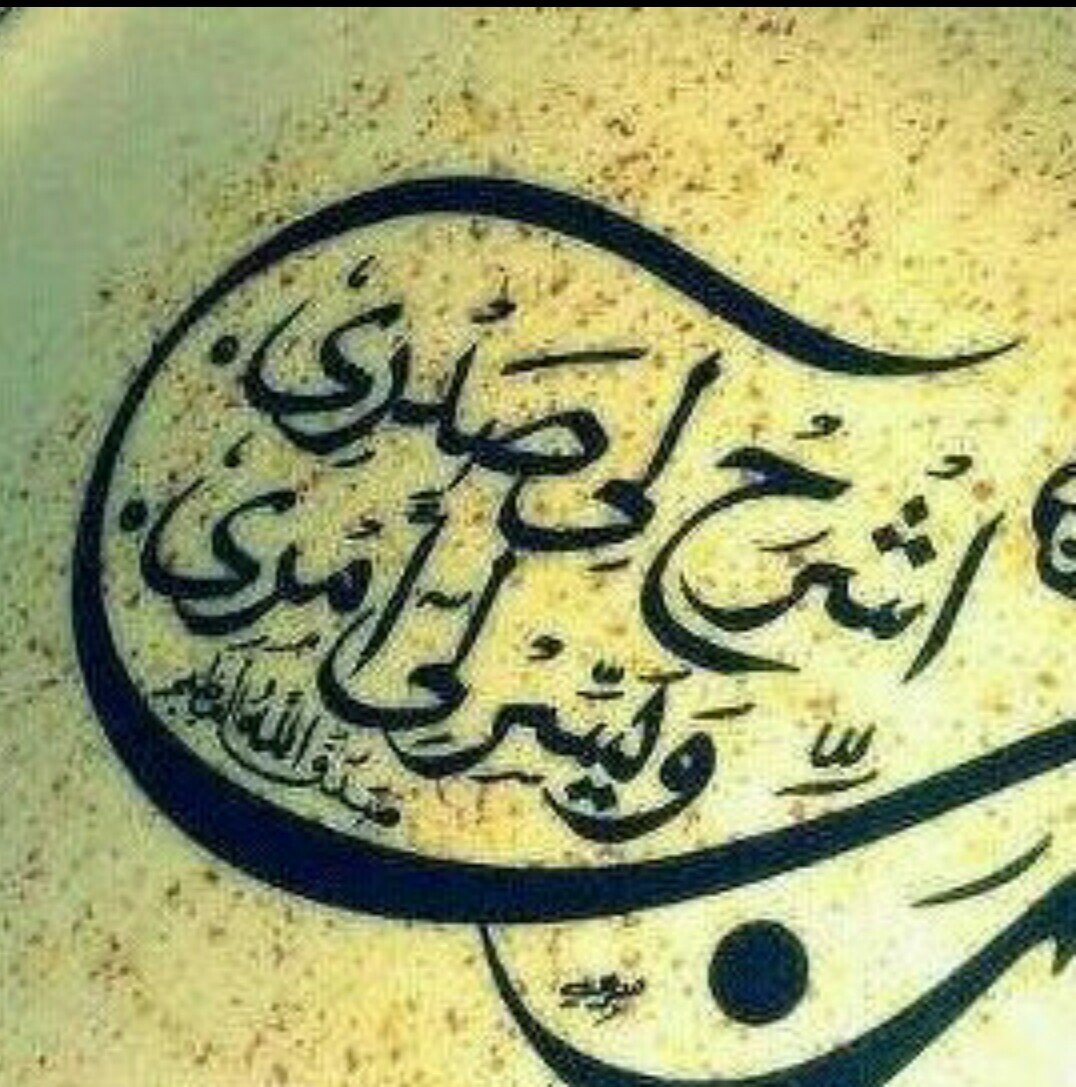 اشْرَحْ لِي صَدْرِي
وَيَسِّرْ لِي أَمْرِي
صدق الله العظيم